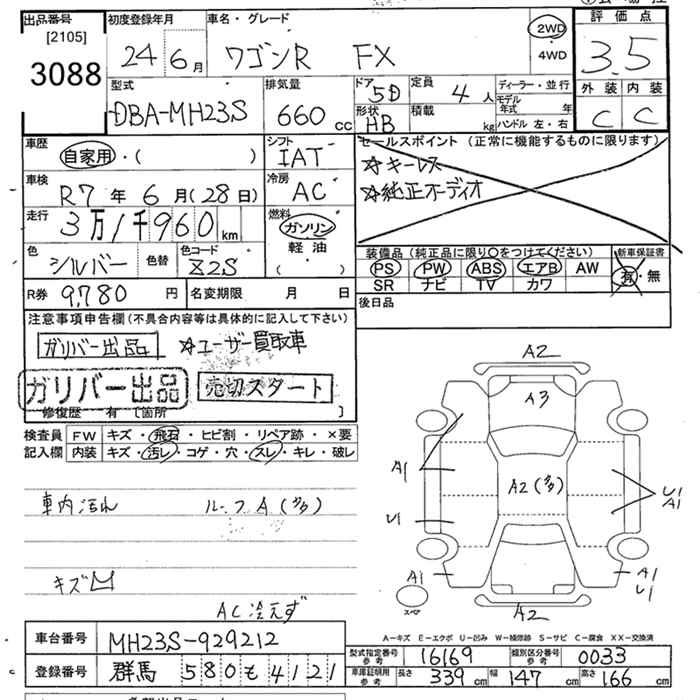 出品番号 初度登録年月 車名・グレード 評価点
[2105] 3088 24 6月 ワゴンR FX 2WD・4WD 3.5
型式 排気量 ドア 定員 ディーラー・並行 外装 内装
DBA-MH23S 660cc 5D 4人 モデル年式 年 C C
形状 HB 積載 kg ハンドル 左・右
車歴 シフト セールスポイント (正常に機能するものに限ります)
自家用・( ) IAT ☆キーレス
車検 R7年6月(28日) 冷房 AC ☆純正オーディオ
走行 3万1千960km 燃料 ガソリン
軽油
( )
色 シルバー 色替 色コード Z2S
装備品 (純正品に限り○をつけてください) 新車保証書
PS PW ABS エアB AW 有・無
SR ナビ TV カワ
R券 9,780円 名変期限 月 日 後日品
注意事項申告欄(不具合内容等は具体的に記入して下さい)
ガリバー出品 ☆ユーザー買取車
ガリバー出品 売切スタート
修復歴 有 [箇所 ]
検査員 FW キズ・飛石・ヒビ割・リペア跡・×要
記入欄 内装 キズ・汚レ・コゲ・穴・スレ・キレ・破レ
A2
A3
A1
A2(多)
U1
A1
U1
A1
A1
U1
スペア
A2
車内汚れ ルーフA(多)
キズ凹
AC冷えず
A−キズ E−エクボ U−凹み W−補修跡 S−サビ C−腐食 XX−交換済
車台番号 MH23S-929212
型式指定番号 参考 16169 類別区分番号 参考 0033
登録番号 群馬 580 も 4121
車庫証明用 参考 長さ 339cm 幅 147cm 高さ 166cm